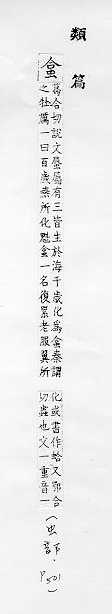 類篇
盒
葛合切說文蜃屬有三皆生於海千歲化為盒秦謂
之牡厲一曰百歲燕所化魁盒一名復累老服翼所
化或書作蛤又鄂合
切蟲也文一重音一
(虫部.P501)